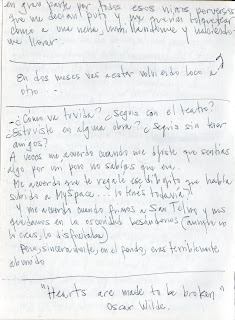 en gran parte por todos esos niños perversos
que me decían puto y me querían toquetear
como a una nena, humillándome y haciéndo-
me llorar.
En dos meses vas a estar volviendo loco a
otro...
¿Cómo va tu vida? ¿Seguís con el teatro?
¿Estuviste en alguna obra? ¿Seguís sin tener
amigos?
A veces me acuerdo cuando me dijiste que sentías
algo por mí pero no sabías que era.
Me acuerdo que te regalé ese dibujito que había
subido a MySpace... lo tenés todavía?
Y me acuerdo cuando fuimos a San Telmo y nos
quedamos en la oscuridad besándonos (aunque no
lo creas, lo disfrutaba)
Pero, sinceramente, en el fondo, eras terriblemente
aburrido
"Hearts are made to be broken"
Oscar Wilde.